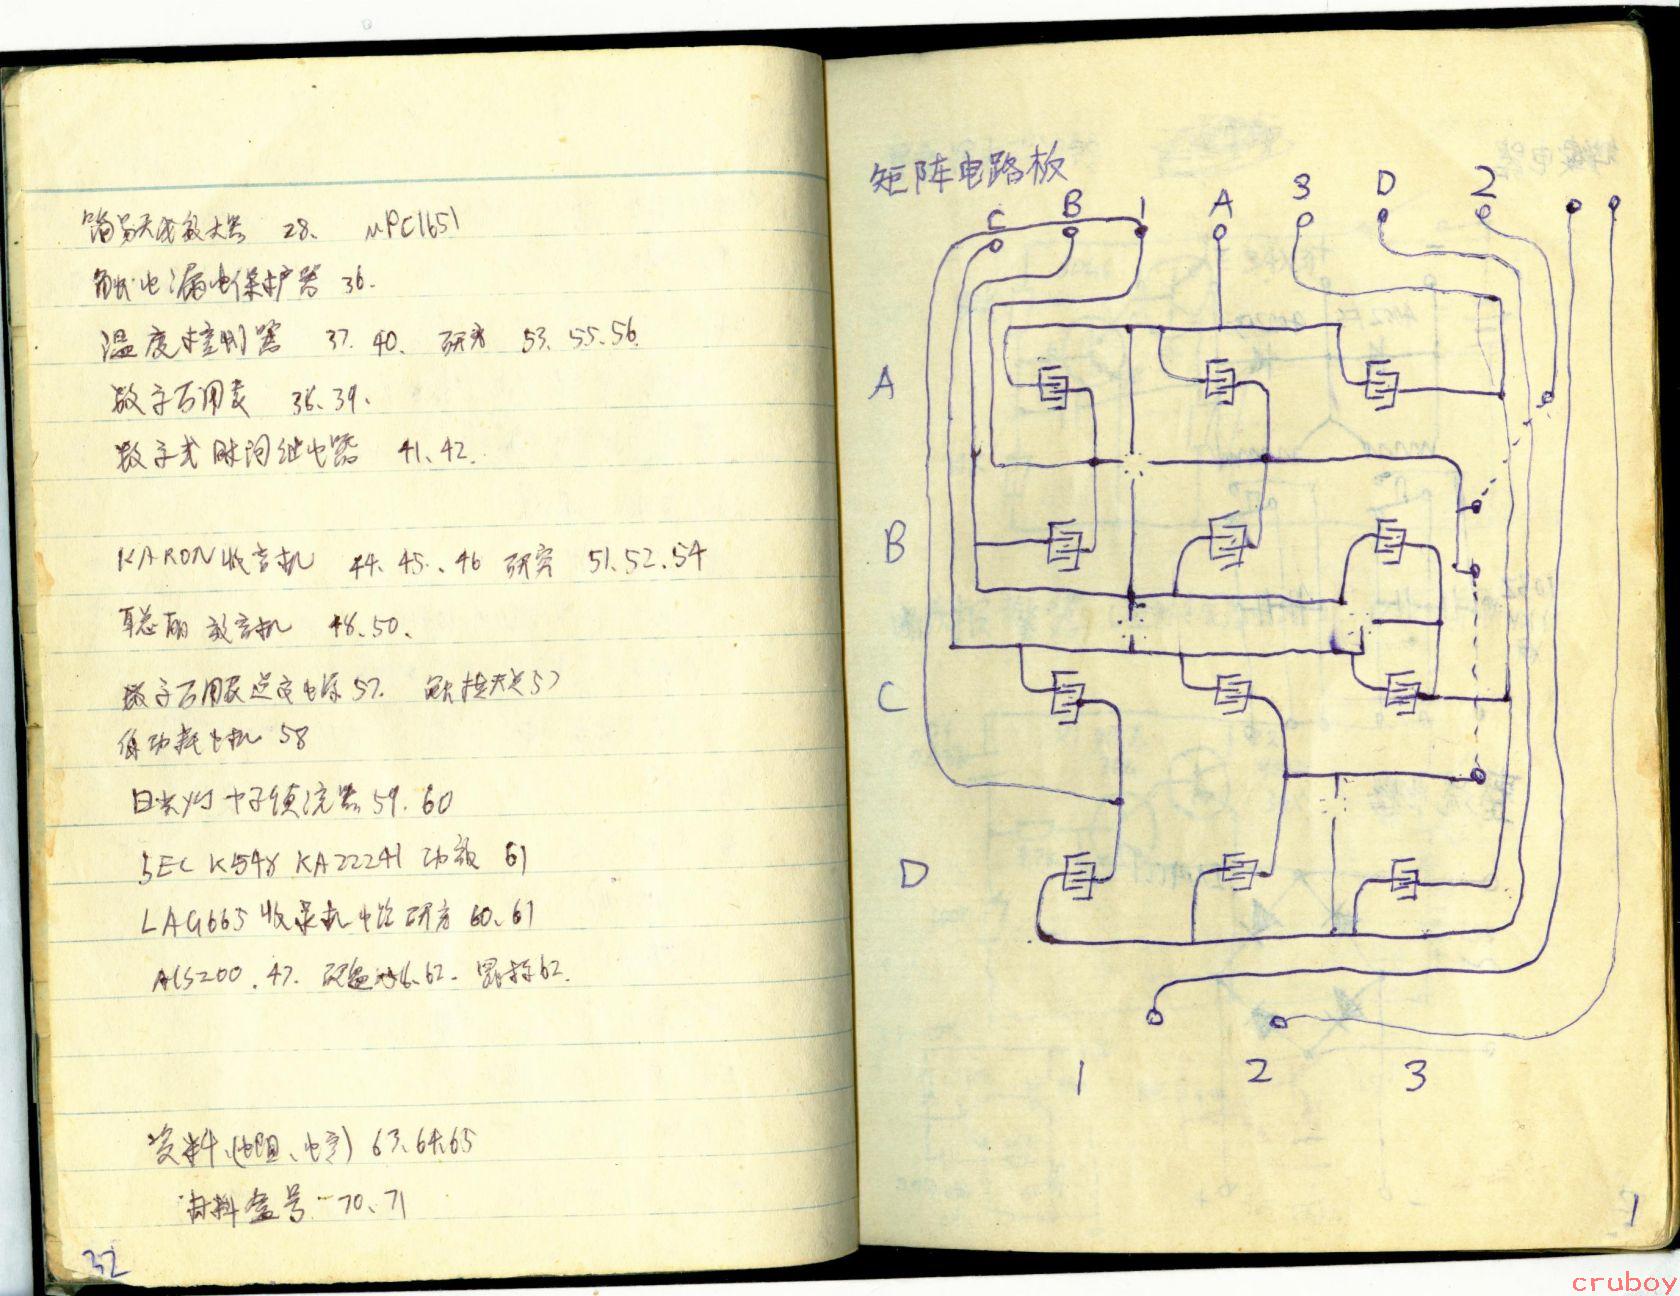 简易天线放大器 28. μPC1651
触电漏电保护器 36.
温度控制器 37. 40. 研究 53. 55. 56.
数字万用表 36. 39.
数字式时间继电器 41. 42.
KARON收音机 44. 45. 46 研究 51. 52. 54
聪丽放音机 48. 50.
数字万用表 电 57. 触摸 57
低功耗电机 58
日光灯电子镇流器 59. 60
SEC K548 KA22241 功放 61
LAG665 收录机电路研究 60. 61
AIS200. 47. 62. 62.
资料(电阻、电容) 63. 64. 65
材料盒号 70、71
32
矩阵电路板
C B 1 A 3 D 2
A
B
C
D
1 2 3
1
cruboy